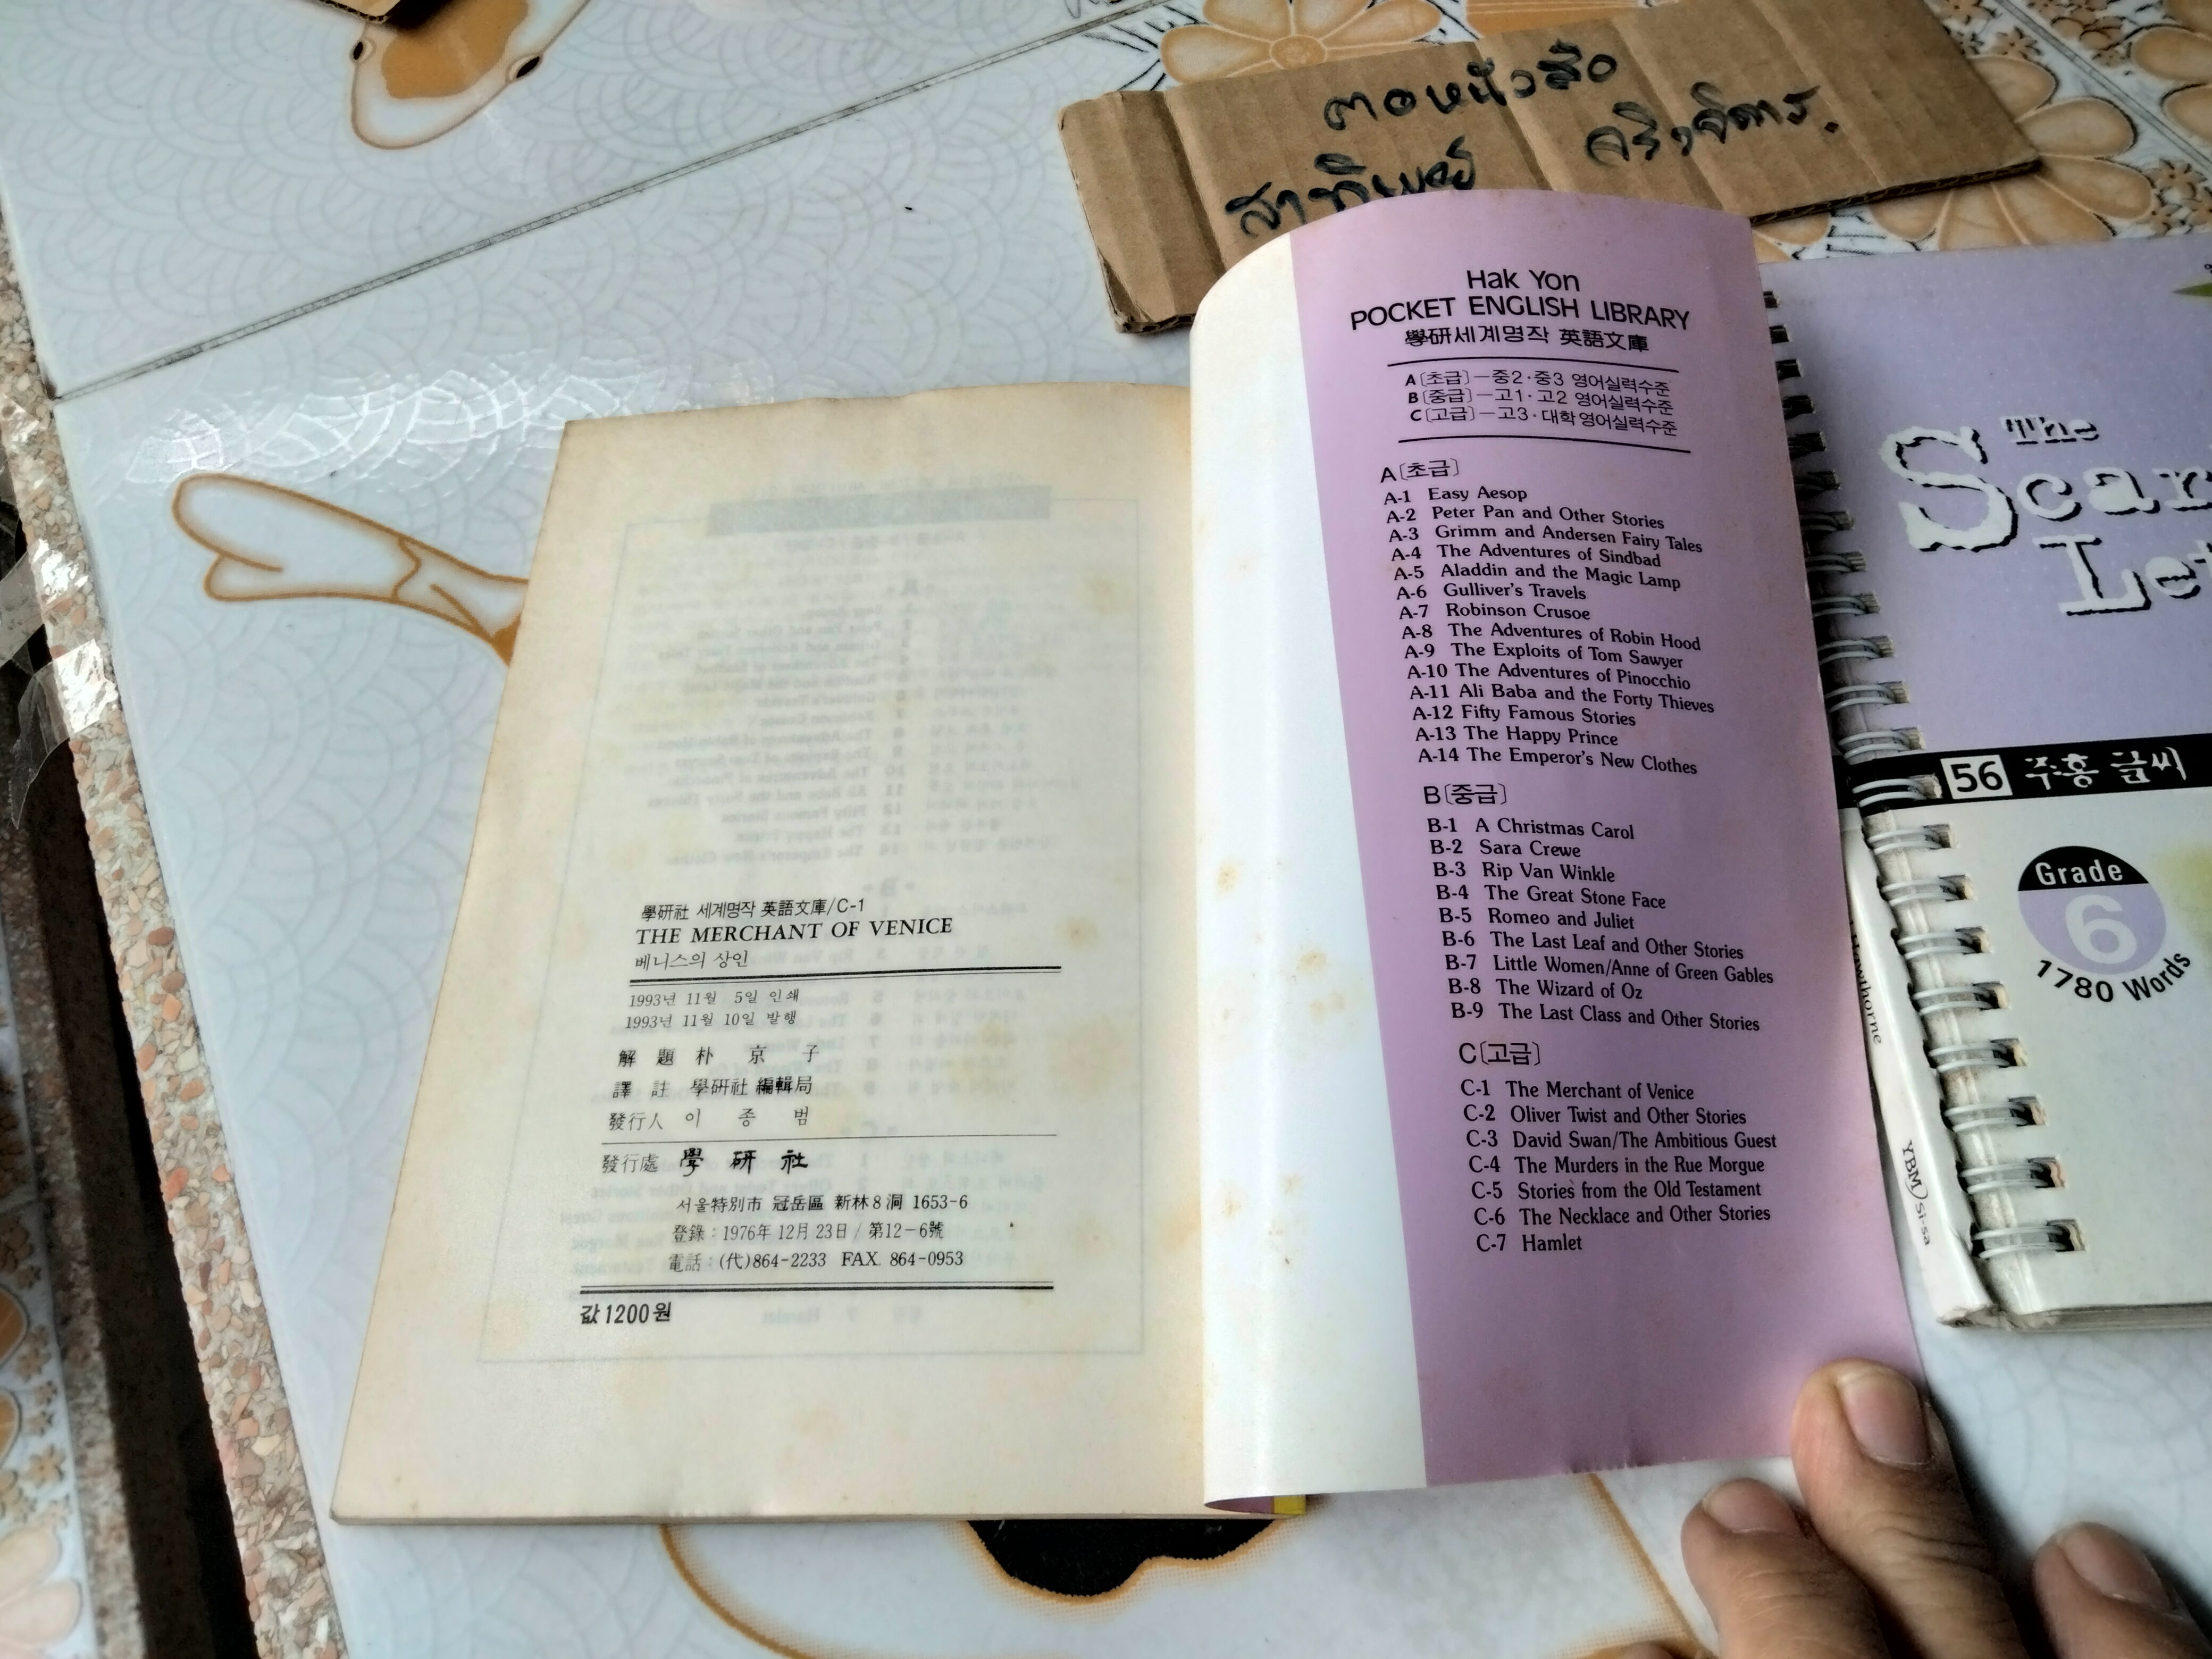 學硏社 세계명작 英語文庫/C-1
THE MERCHANT OF VENICE
베니스의 상인
1993년 11월 5일 인쇄
1993년 11월 10일 발행
解 題 朴 京 子
譯 註 學硏社 編輯局
發行人 이 종 범
發行處 學 硏 社
서울特別市 冠岳區 新林8洞 1653-6
登錄 : 1976年 12月 23日 / 第12-6號
電話 : (代)864-2233 FAX. 864-0953
값 1200원
Hak Yon
POCKET ENGLISH LIBRARY
學硏세계명작 英語文庫
A〔초급〕—중2·중3 영어실력수준
B〔중급〕—고1·고2 영어실력수준
C〔고급〕—고3·대학영어실력수준
A〔초급〕
A-1 Easy Aesop
A-2 Peter Pan and Other Stories
A-3 Grimm and Andersen Fairy Tales
A-4 The Adventures of Sindbad
A-5 Aladdin and the Magic Lamp
A-6 Gulliver's Travels
A-7 Robinson Crusoe
A-8 The Adventures of Robin Hood
A-9 The Exploits of Tom Sawyer
A-10 The Adventures of Pinocchio
A-11 Ali Baba and the Forty Thieves
A-12 Fifty Famous Stories
A-13 The Happy Prince
A-14 The Emperor's New Clothes
B〔중급〕
B-1 A Christmas Carol
B-2 Sara Crewe
B-3 Rip Van Winkle
B-4 The Great Stone Face
B-5 Romeo and Juliet
B-6 The Last Leaf and Other Stories
B-7 Little Women/Anne of Green Gables
B-8 The Wizard of Oz
B-9 The Last Class and Other Stories
C〔고급〕
C-1 The Merchant of Venice
C-2 Oliver Twist and Other Stories
C-3 David Swan/The Ambitious Guest
C-4 The Murders in the Rue Morgue
C-5 Stories from the Old Testament
C-6 The Necklace and Other Stories
C-7 Hamlet
The
Scar
Let
56 주홍 글씨
Grade
6
1780 Words
Hawthorne
YBM Si-sa